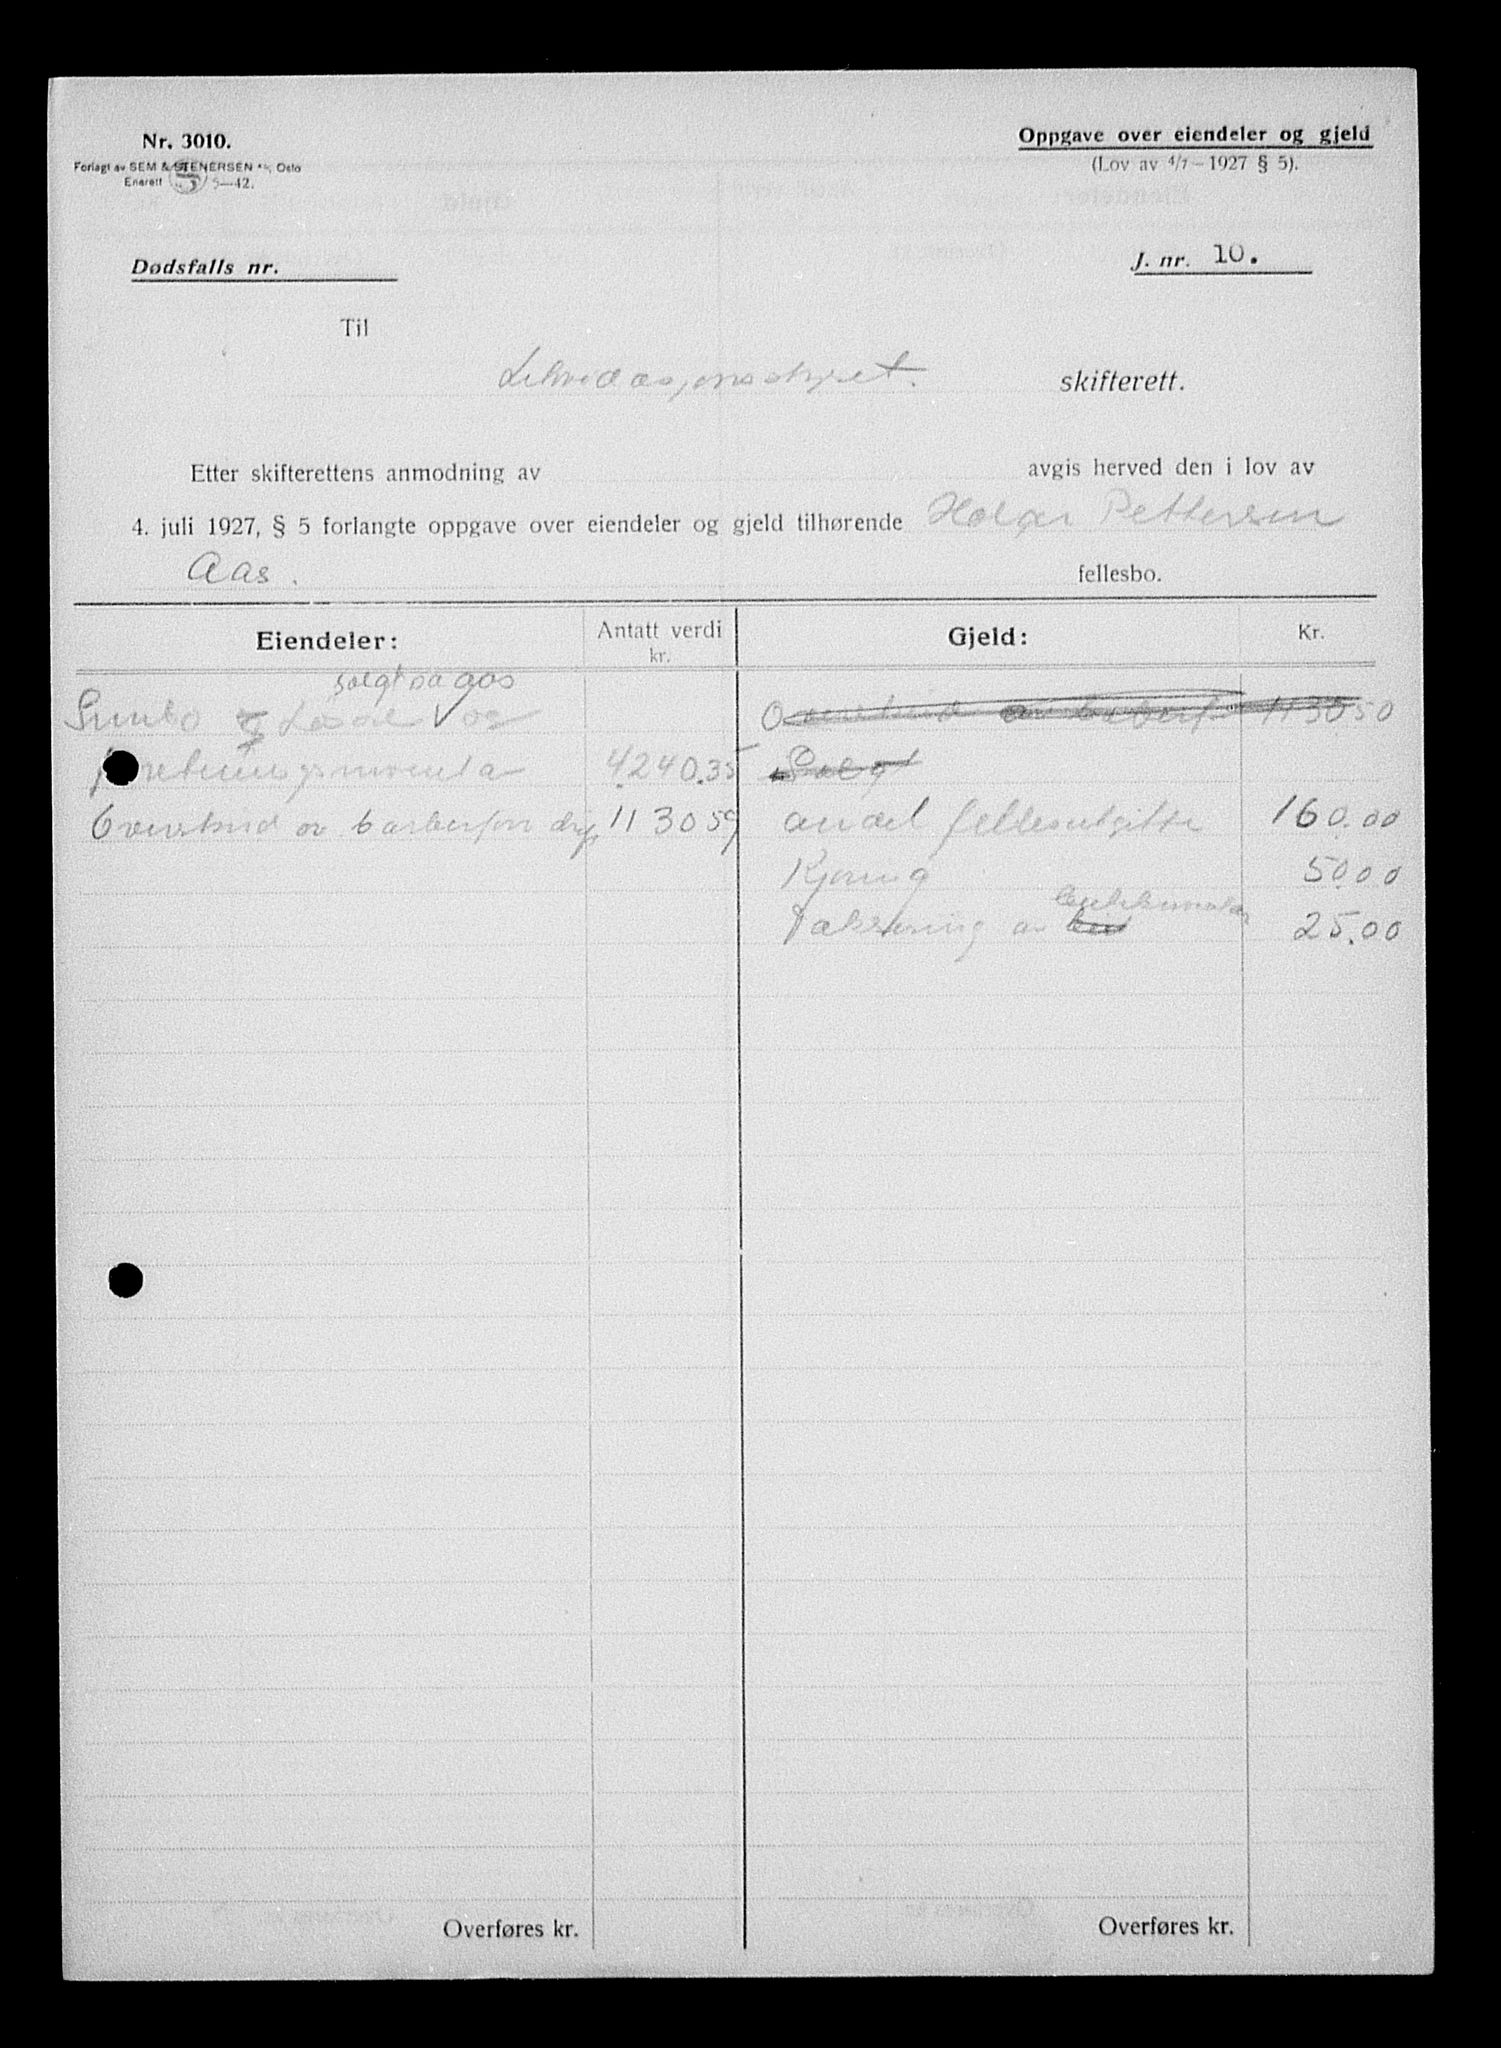 Nr. 3010.
Forlagt av SEM & STENERSEN A/S, Oslo
Enerett 5—42.
Oppgave over eiendeler og gjeld
(Lov av 4/7 – 1927 § 5).
Dødsfalls nr.
J. nr. 10.
Til
Likvidasjonsstyret. skifterett.
Etter skifterettens anmodning av avgis herved den i lov av
4. juli 1927, § 5 forlangte oppgave over eiendeler og gjeld tilhørende Holger Pettersen
Aas. fellesbo.
Eiendeler: Antatt verdi kr. Gjeld: Kr.
solgt pa aas
Innbo og Lösöre og 113050
4240.35 Solgt
Overskud av barberforr 113059 andel fellesutgifter 160.00
Kjöring 50.00
Taksering av 25.00
Overføres kr. Overføres kr.